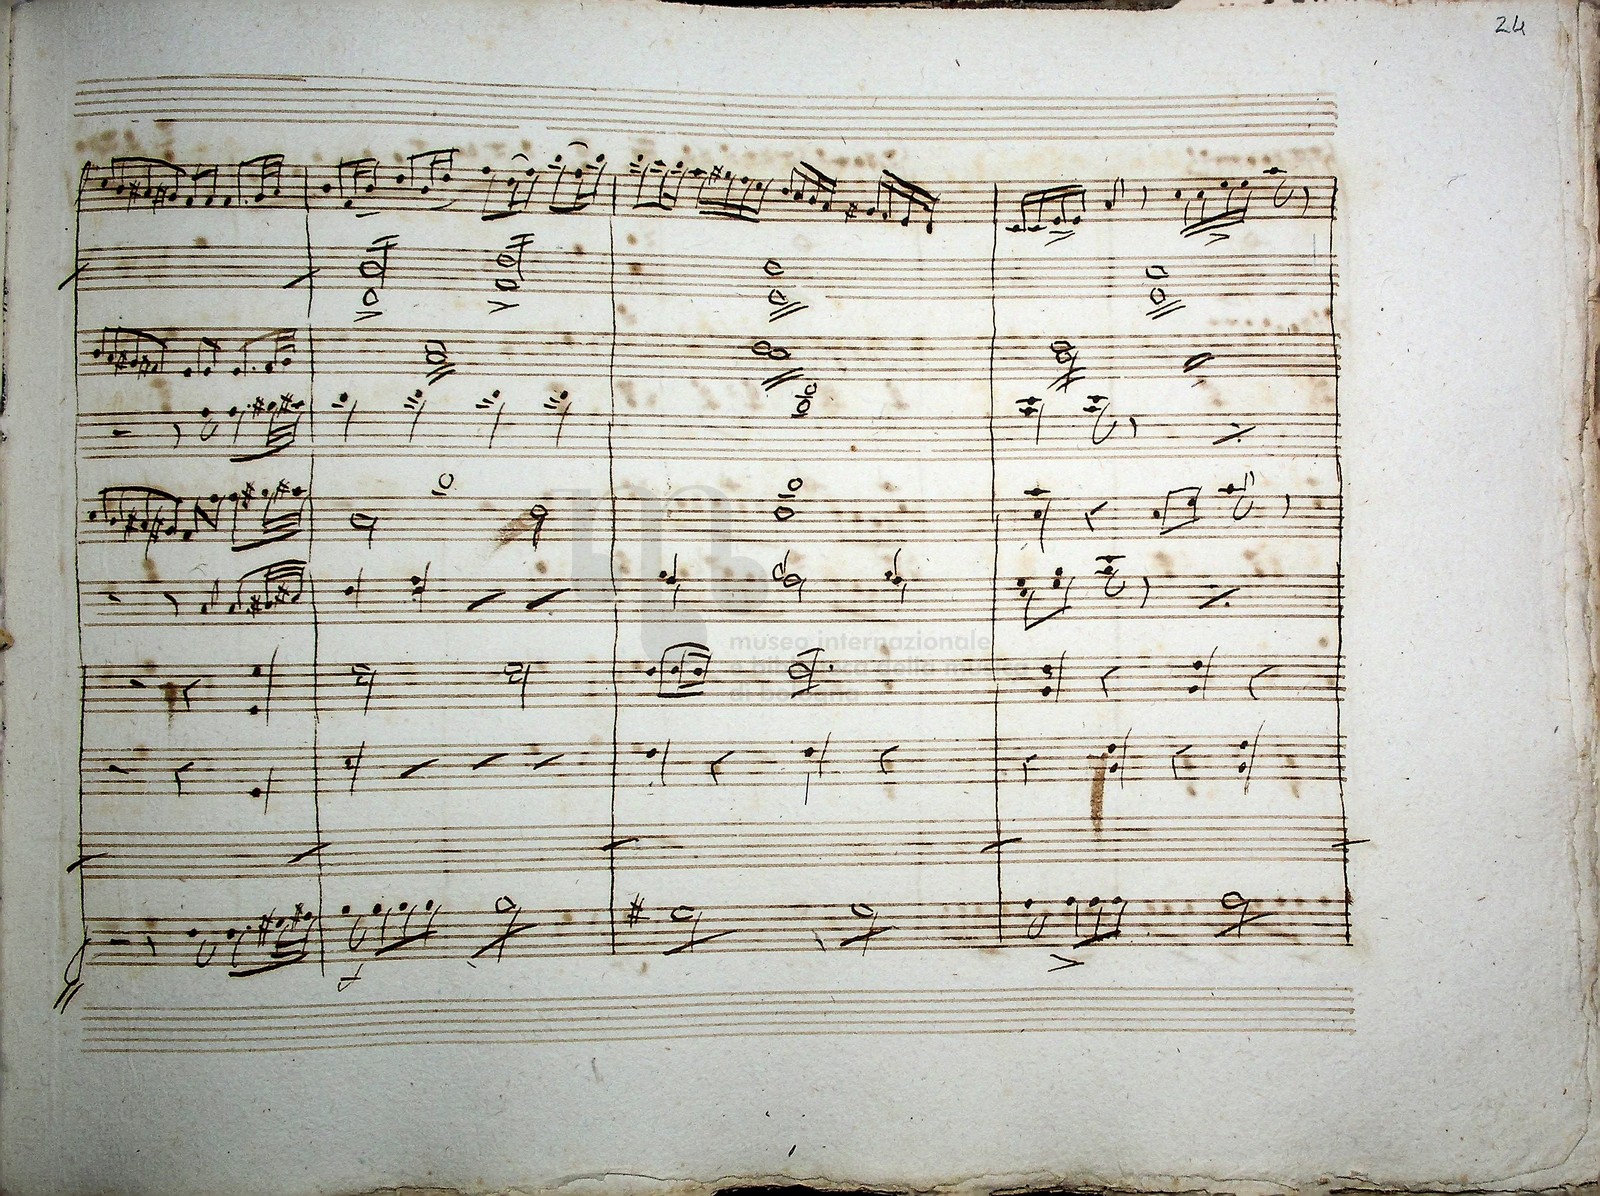 24
museo internazionale
e biblioteca della musica
di bologna